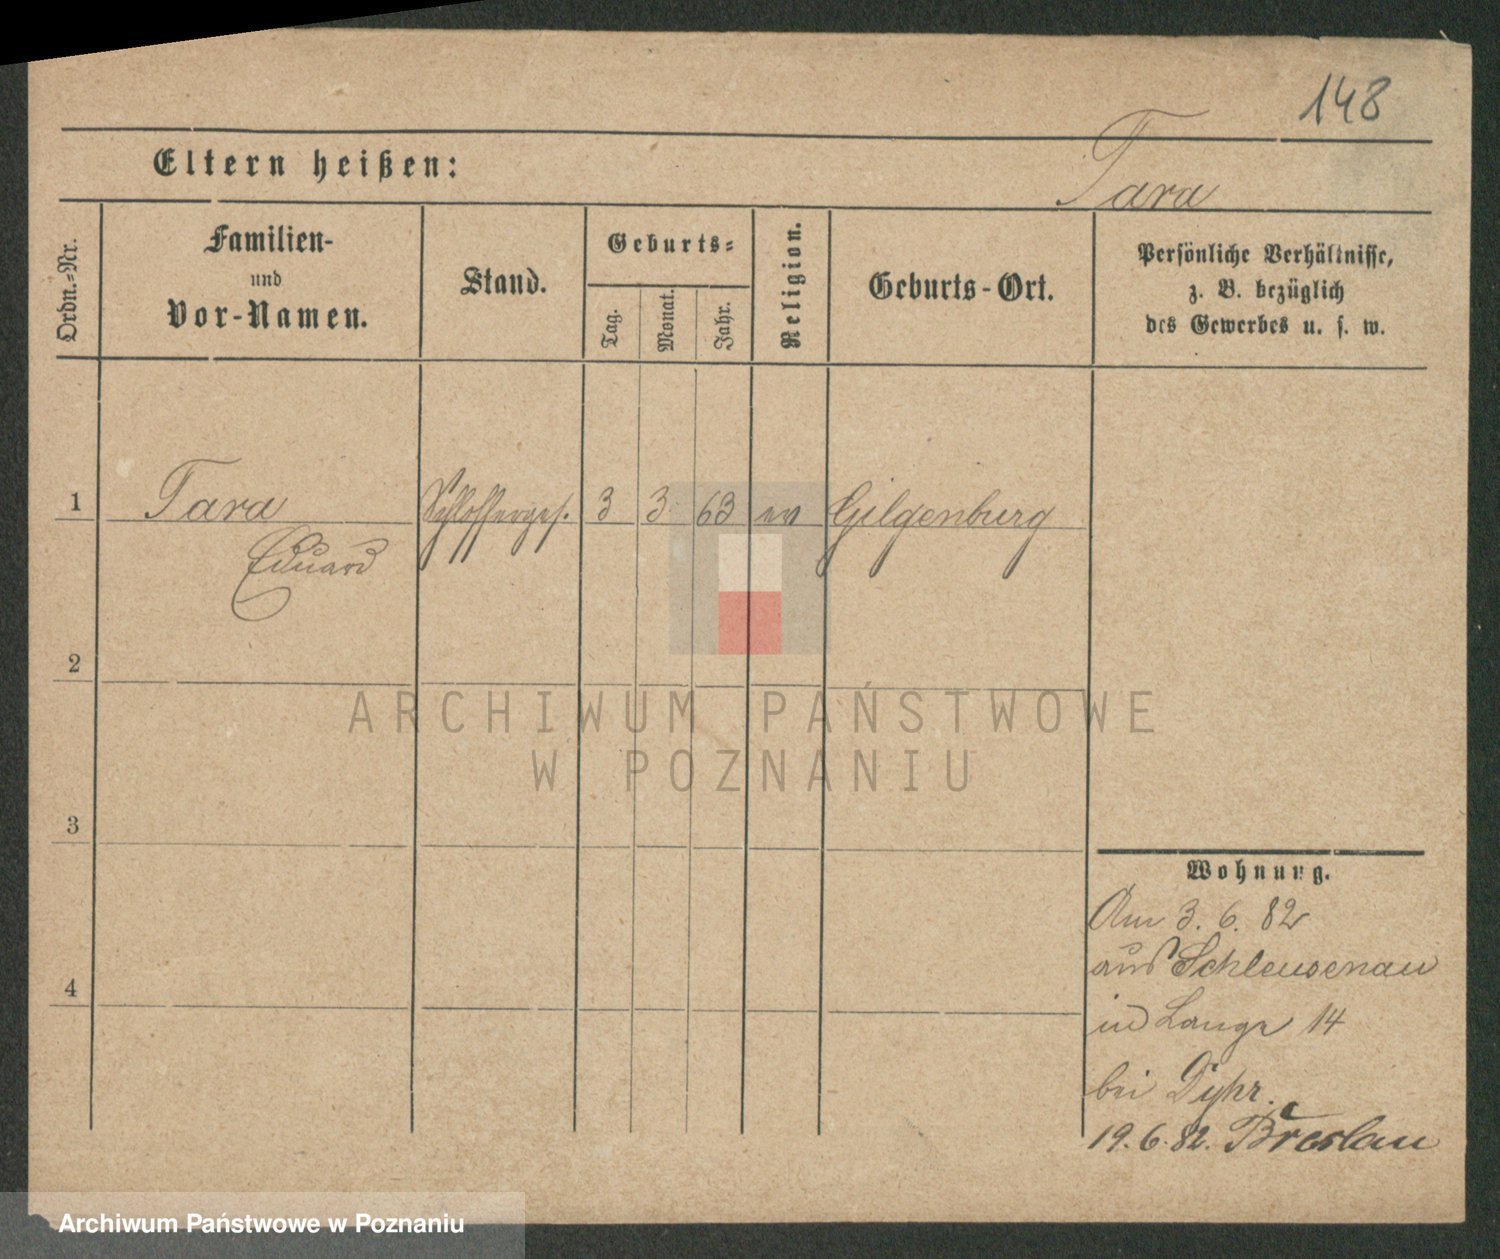 148
Eltern heißen:
Tara
Ordn.-Nr.
Familien-
und
Vor-Namen.
Stand.
Geburts-
Tag.
Monat.
Jahr.
Religion.
Geburts-Ort.
Persönliche Verhältnisse,
z. B. bezüglich
des Gewerbes u. s. w.
1
Tara
Schlosserges.
3
3
63
ev
Gilgenburg
Eduard
2
3
4
Wohnung.
Am 3. 6. 82
aus Schleusenau
in Lange 14
bei Dyhr.
19. 6. 82. Breslau
ARCHIWUM PAŃSTWOWE
W POZNANIU
Archiwum Państwowe w Poznaniu